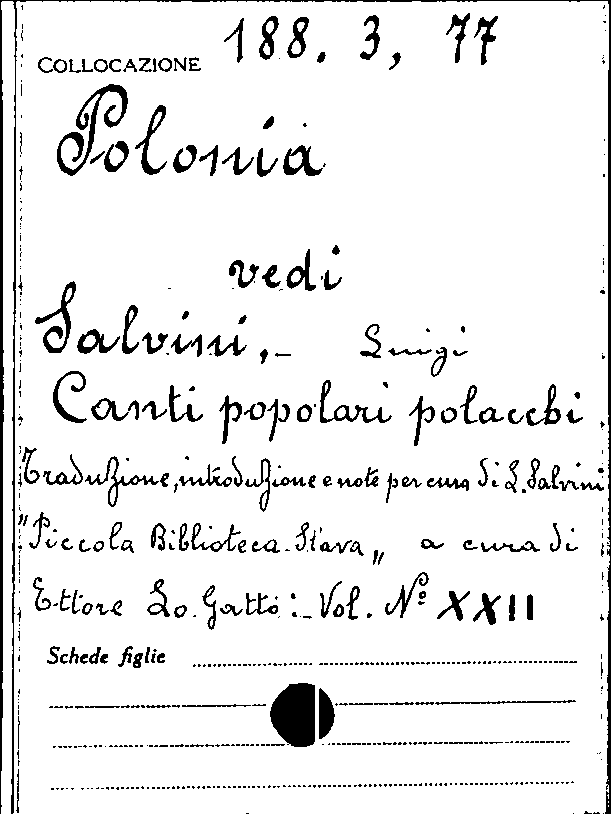 COLLOCAZIONE 188. 3, 77
Polonia
vedi
Salvini,- Luigi
Canti popolari polacchi
Traduzione, introduzione e note per cura di L. Salvini
"Piccola Biblioteca Slava„ a cura di
Ettore Lo Gatto :- Vol. Nº XXII
Schede figlie